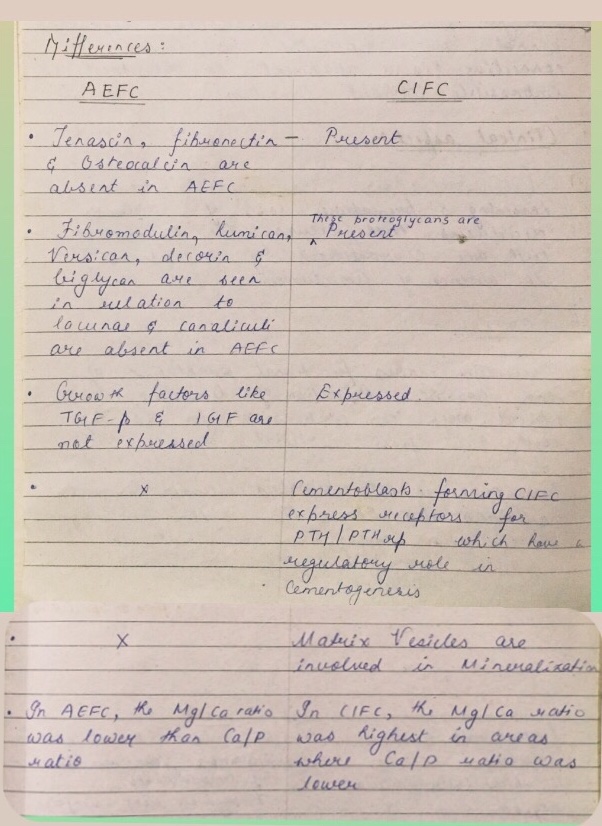 Differences:
AEFC CIFC
• Tenascin, fibronectin – Present
& Osteocalcin are
absent in AEFC
These proteoglycans are
• Fibromodulin, lumican, ^ Present
Versican, decorin &
biglycan are seen
in relation to
lacunae & canaliculi
are absent in AEFC
• Growth factors like Expressed
TGF-β & IGF are
not expressed
• x Cementoblasts forming CIFC
express receptors for
PTH/PTHrp which have a
regulatory role in
Cementogenesis
• x Matrix Vesicles are
involved in Mineralization
• In AEFC, the Mg/Ca ratio In CIFC, the Mg/Ca ratio
was lower than Ca/P was highest in areas
ratio where Ca/P ratio was
lower